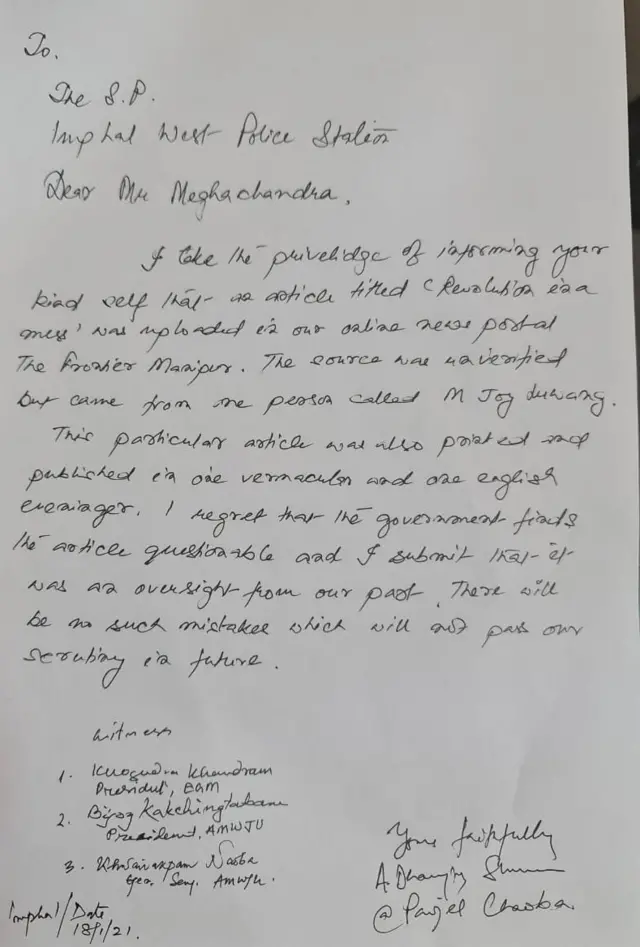 To.
The S.P.
Imphal West Police Station
Dear Mr Meghachandra,
I take the privelidge of informing your
kind self that an article titled 'Revolution in a
mess' was uploaded in our online news portal
The Frontier Manipur. The source was unverified
but came from one person called M Joy Luwang.
This particular article was also printed and
published in one vernacular and one english
eveninger. I regret that the government finds
the article questionable and I submit that it
was an oversight from our part. There will
be no such mistakes which will not pass our
scrutiny in future.
Witness
1. Khogendra Khomdram
President, EGM
2. Bijoy Kakchingtabam
President, AMWJU
3. Naoba
Gen. Secy. AMWJU.
Yours faithfully
A Dhanjoy
@ Paojel Chaoba.
Imphal/Date
18/1/21.